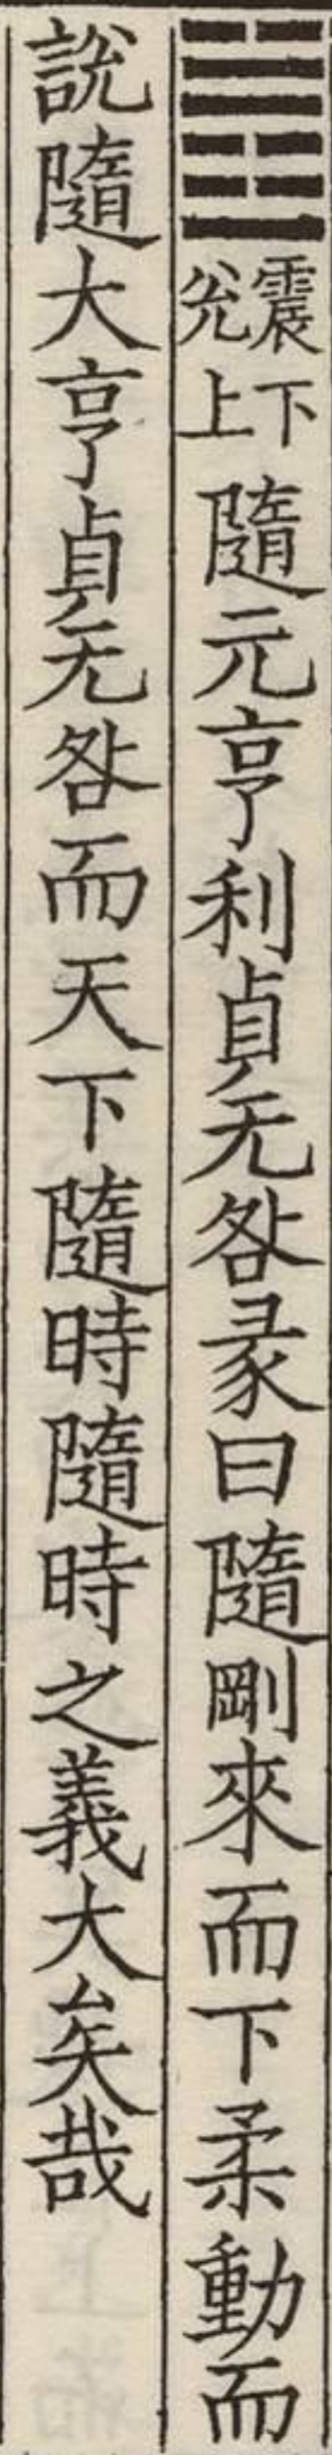 ䷐震下兊上隨元亨利貞无咎彖曰隨剛來而下柔動而
說隨大亨貞无咎而天下隨時隨時之義大矣哉